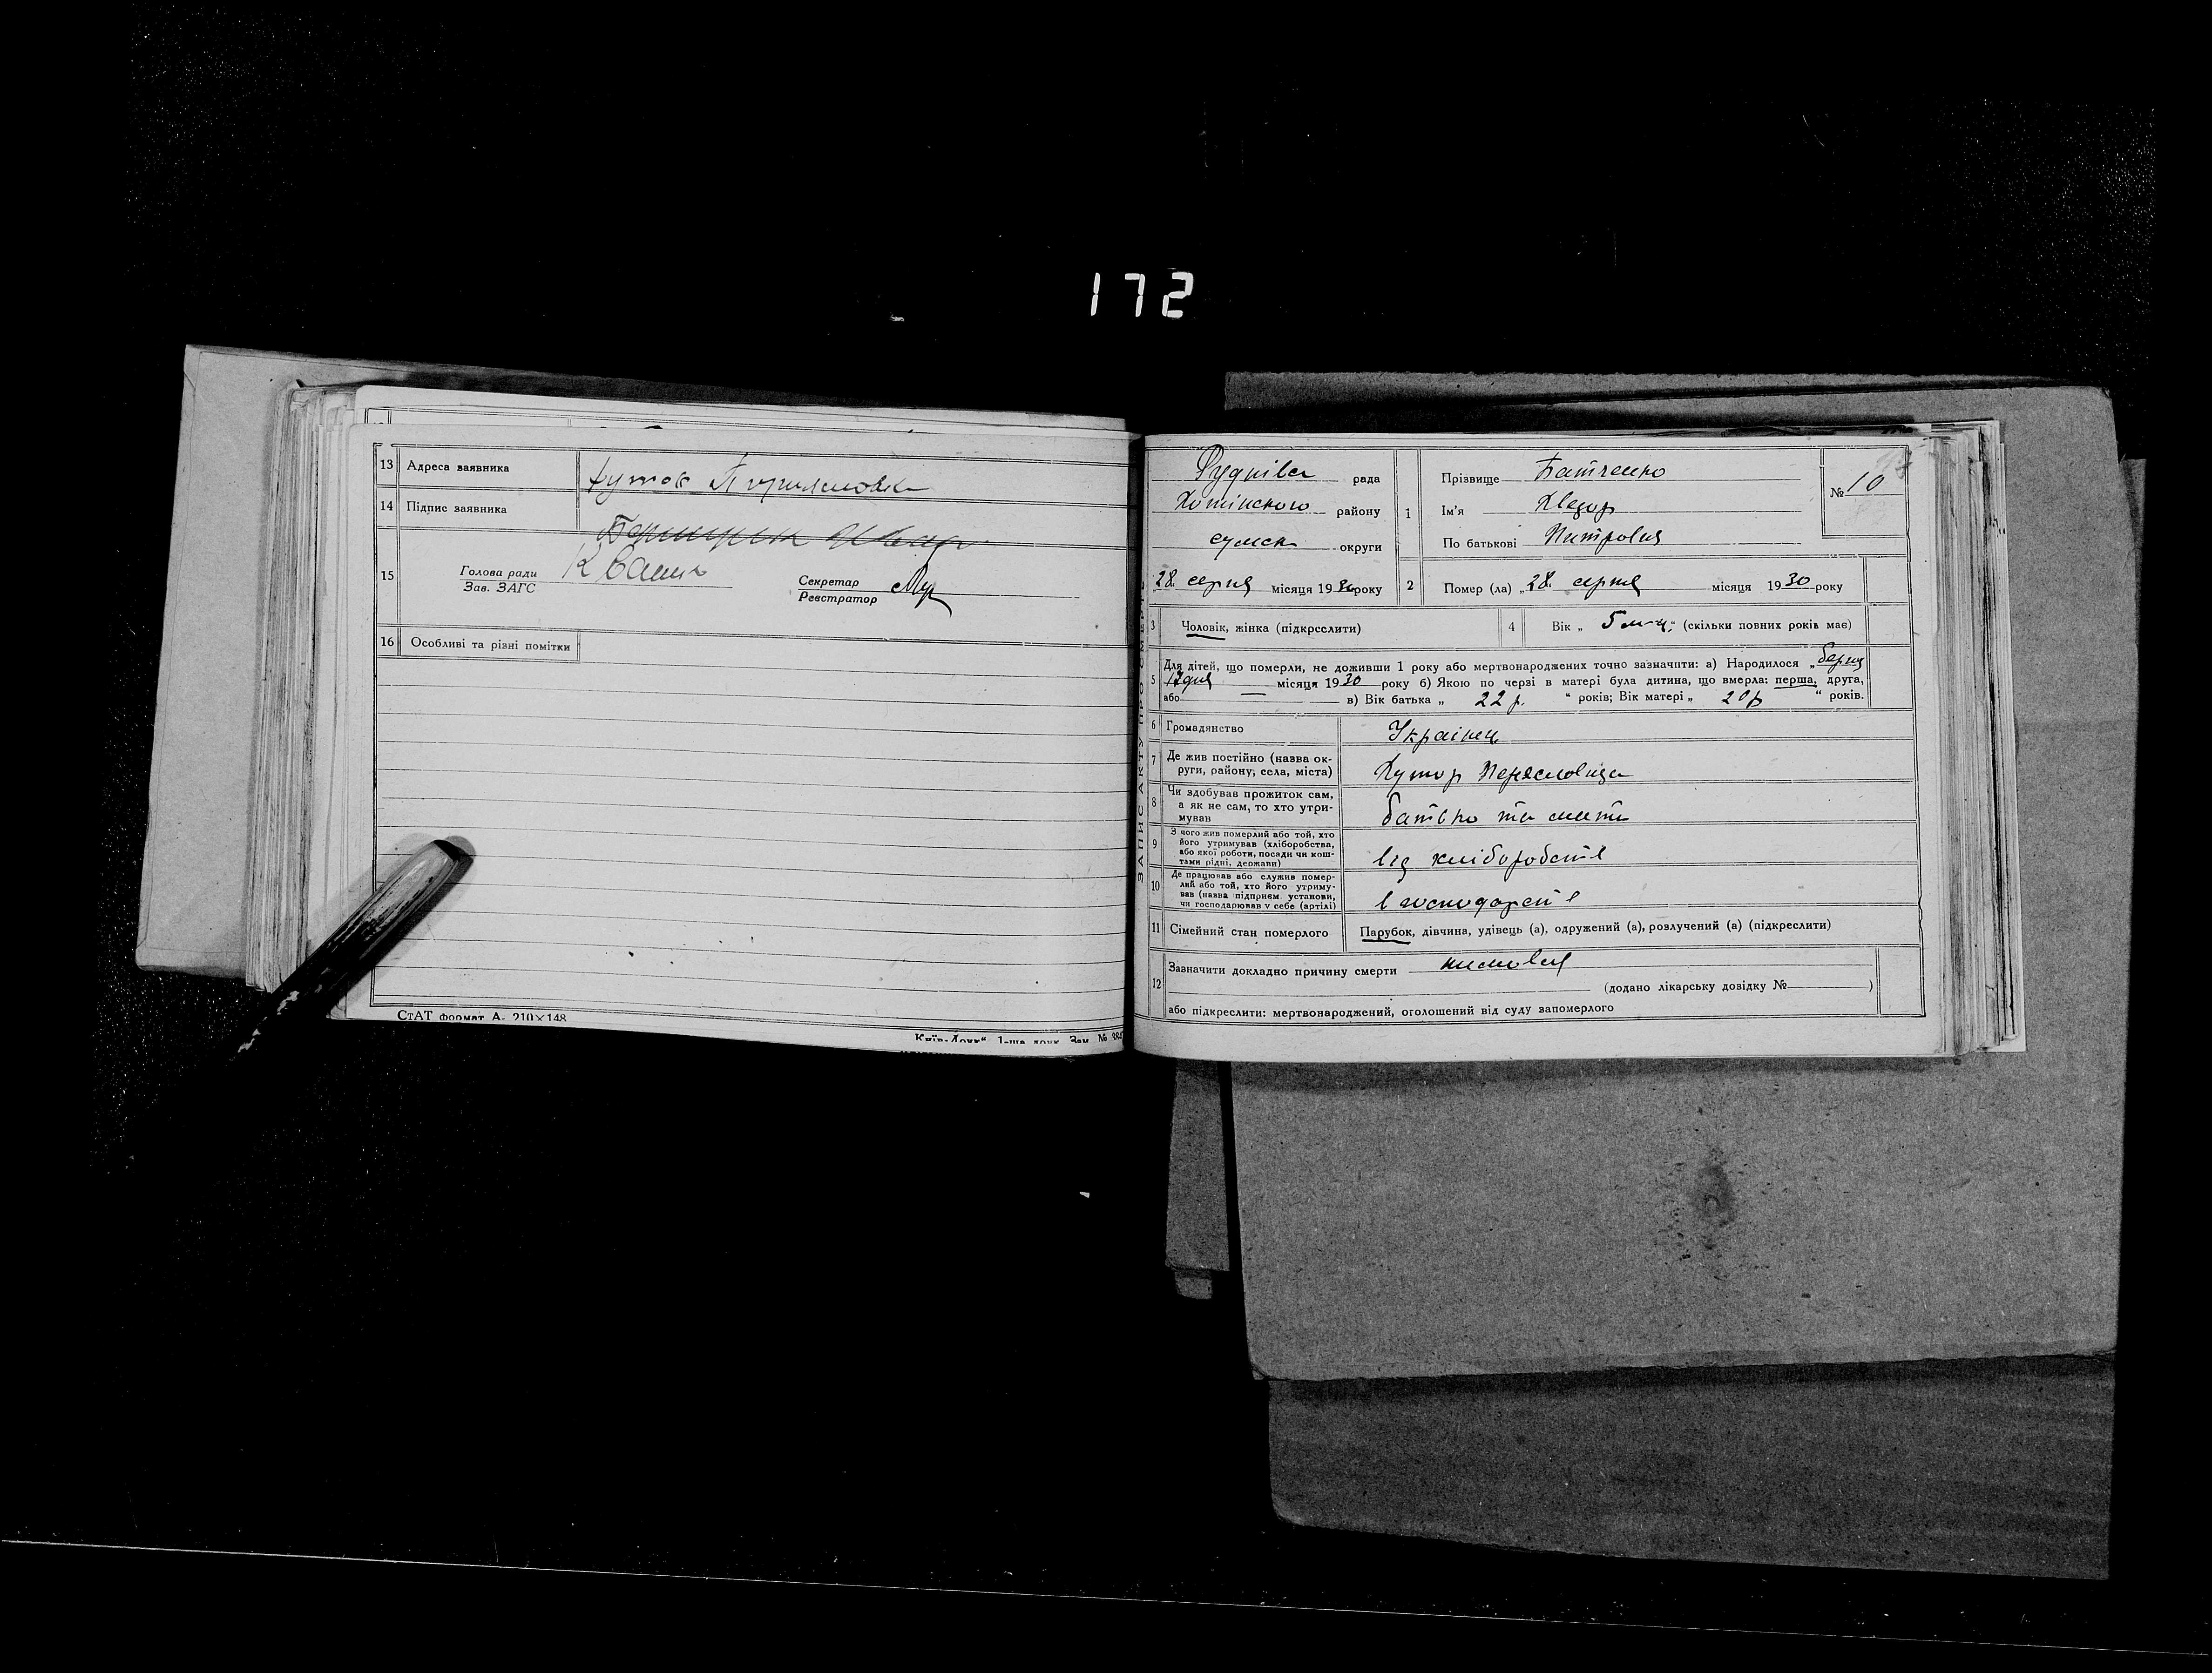 172
13 Адреса заявника хутор
14 Підпис заявника
15 Голова ради
Зав. ЗАГС
Секретар
Реєстратор
16 Особливі та різні помітки
СтАТ формат А₅ 210×148
ЗАПИС АКТУ ПРО СМЕРТЬ
рада
Хотінського району
сумск округи
28 серпня місяця 1930 року
№ 10
1 Прізвище Батченко
Ім'я Хведор
По батькові Питровия
2 Помер (ла) „28 серпня місяця 1930 року
3 Чоловік, жінка (підкреслити)
4 Вік „ 5 м-ц " (скільки повних років має)
5 Для дітей, що померли, не доживши 1 року або мертвонароджених точно зазначити: а) Народилося „
17 дня — місяця 1930 року б) Якою по черзі в матері була дитина, що вмерла: перша, друга,
або — в) Вік батька „ 22 р. " років; Вік матері „ 20 р " років.
6 Громадянство Українец
7 Де жив постійно (назва ок-
руги, району, села, міста) Хутор
8 Чи здобував прожиток сам,
а як не сам, то хто утри-
мував батько та мати
9 З чого жив померлий або той, хто
його утримував (хліборобства,
або якої роботи, посади чи кош-
тами рідні, держави) від хліборобств
10 Де працював або служив помер-
лий або той, хто його утриму-
вав (назва підприєм. установи,
чи господарював у себе (артілі) в господарств
11 Сімейний стан померлого Парубок, дівчина, удівець (а), одружений (а), розлучений (а) (підкреслити)
12 Зазначити докладно причину смерти
(додано лікарську довідку № )
або підкреслити: мертвонароджений, оголошений від суду запомерлого